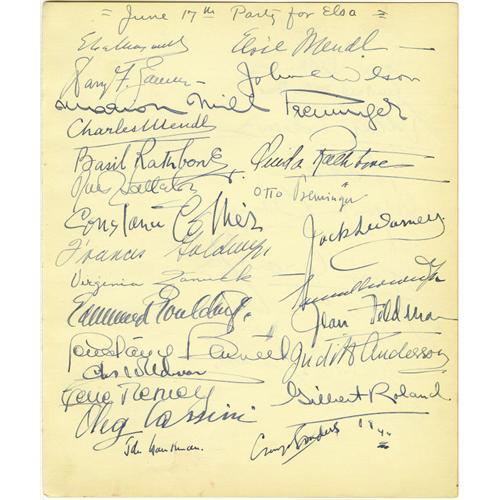 = June 17th Party for Elsa =
Elsa Maxwell
Elsie Mendl
John C Wilson
Marion Mill Preminger
Charles Mendl
Basil Rathbone
Ouida Rathbone
Otto Preminger
Constance Collier
Jack L Warner
Frances Goldwyn
Virginia Zanuck
Edmund Goulding
Jean Feldman
Judith Anderson
Chas Feldman
Gene Tierney
Gilbert Roland
Oleg Cassini
George Sanders